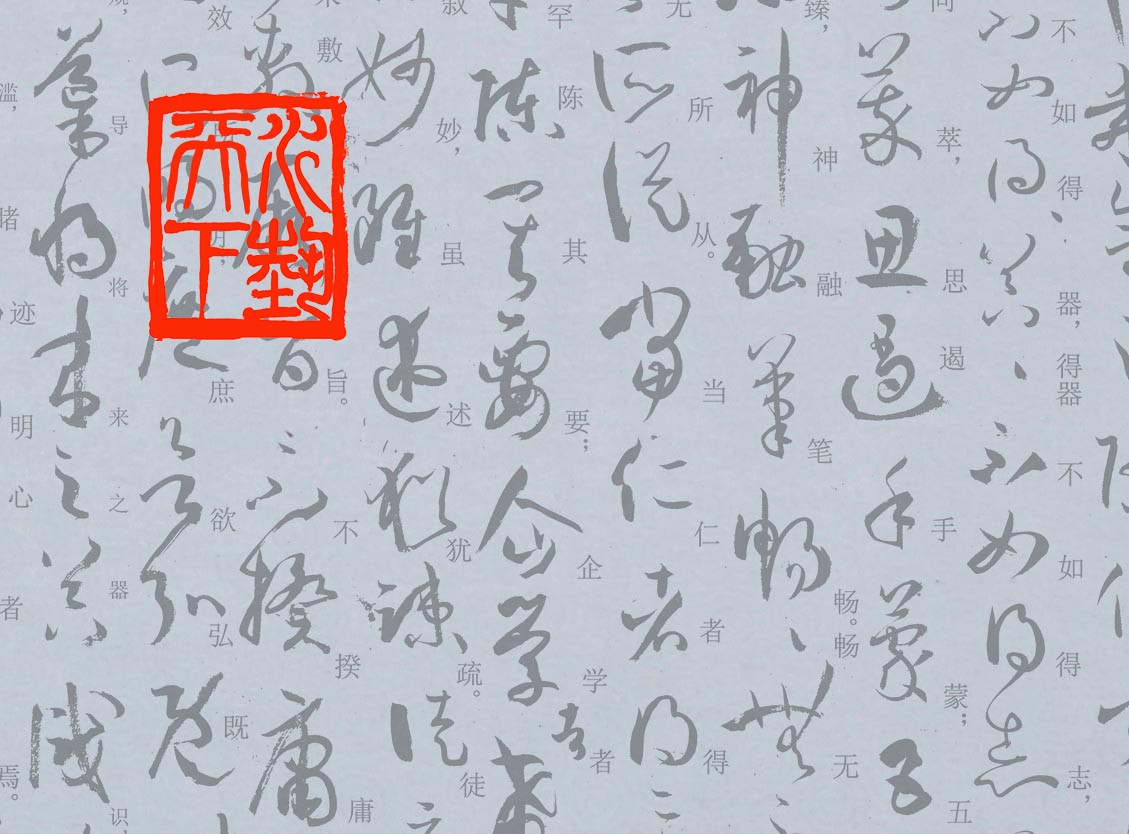 不如得器,得器不如得志,
同萃,思遏手蒙;五
臻,神融笔畅。畅无
无所从。当仁者得
罕陈其要;企学者
叙妙,虽述犹疏。徒
敷旨。不揆庸
效庶欲弘既
导将来之器识,
滥,睹迹明心者焉。